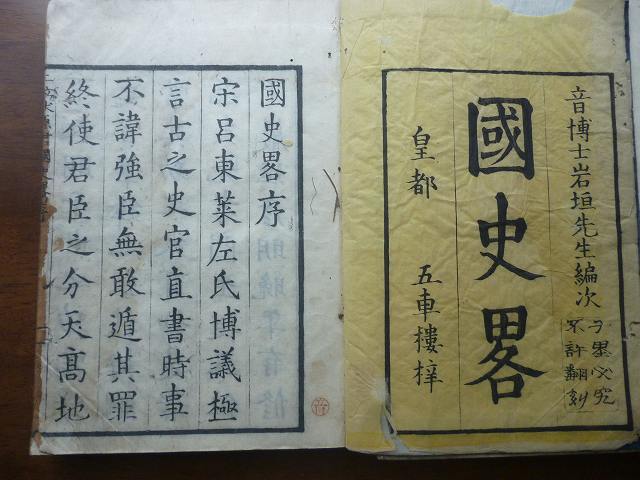 音博士岩垣先生編次
不許翻刻
千里必究
國史畧
皇都 五車樓梓
國史畧序
宋呂東萊左氏博議極
言古之史官直書時事
不諱強臣無敢遁其罪
終使君臣之分天髙地